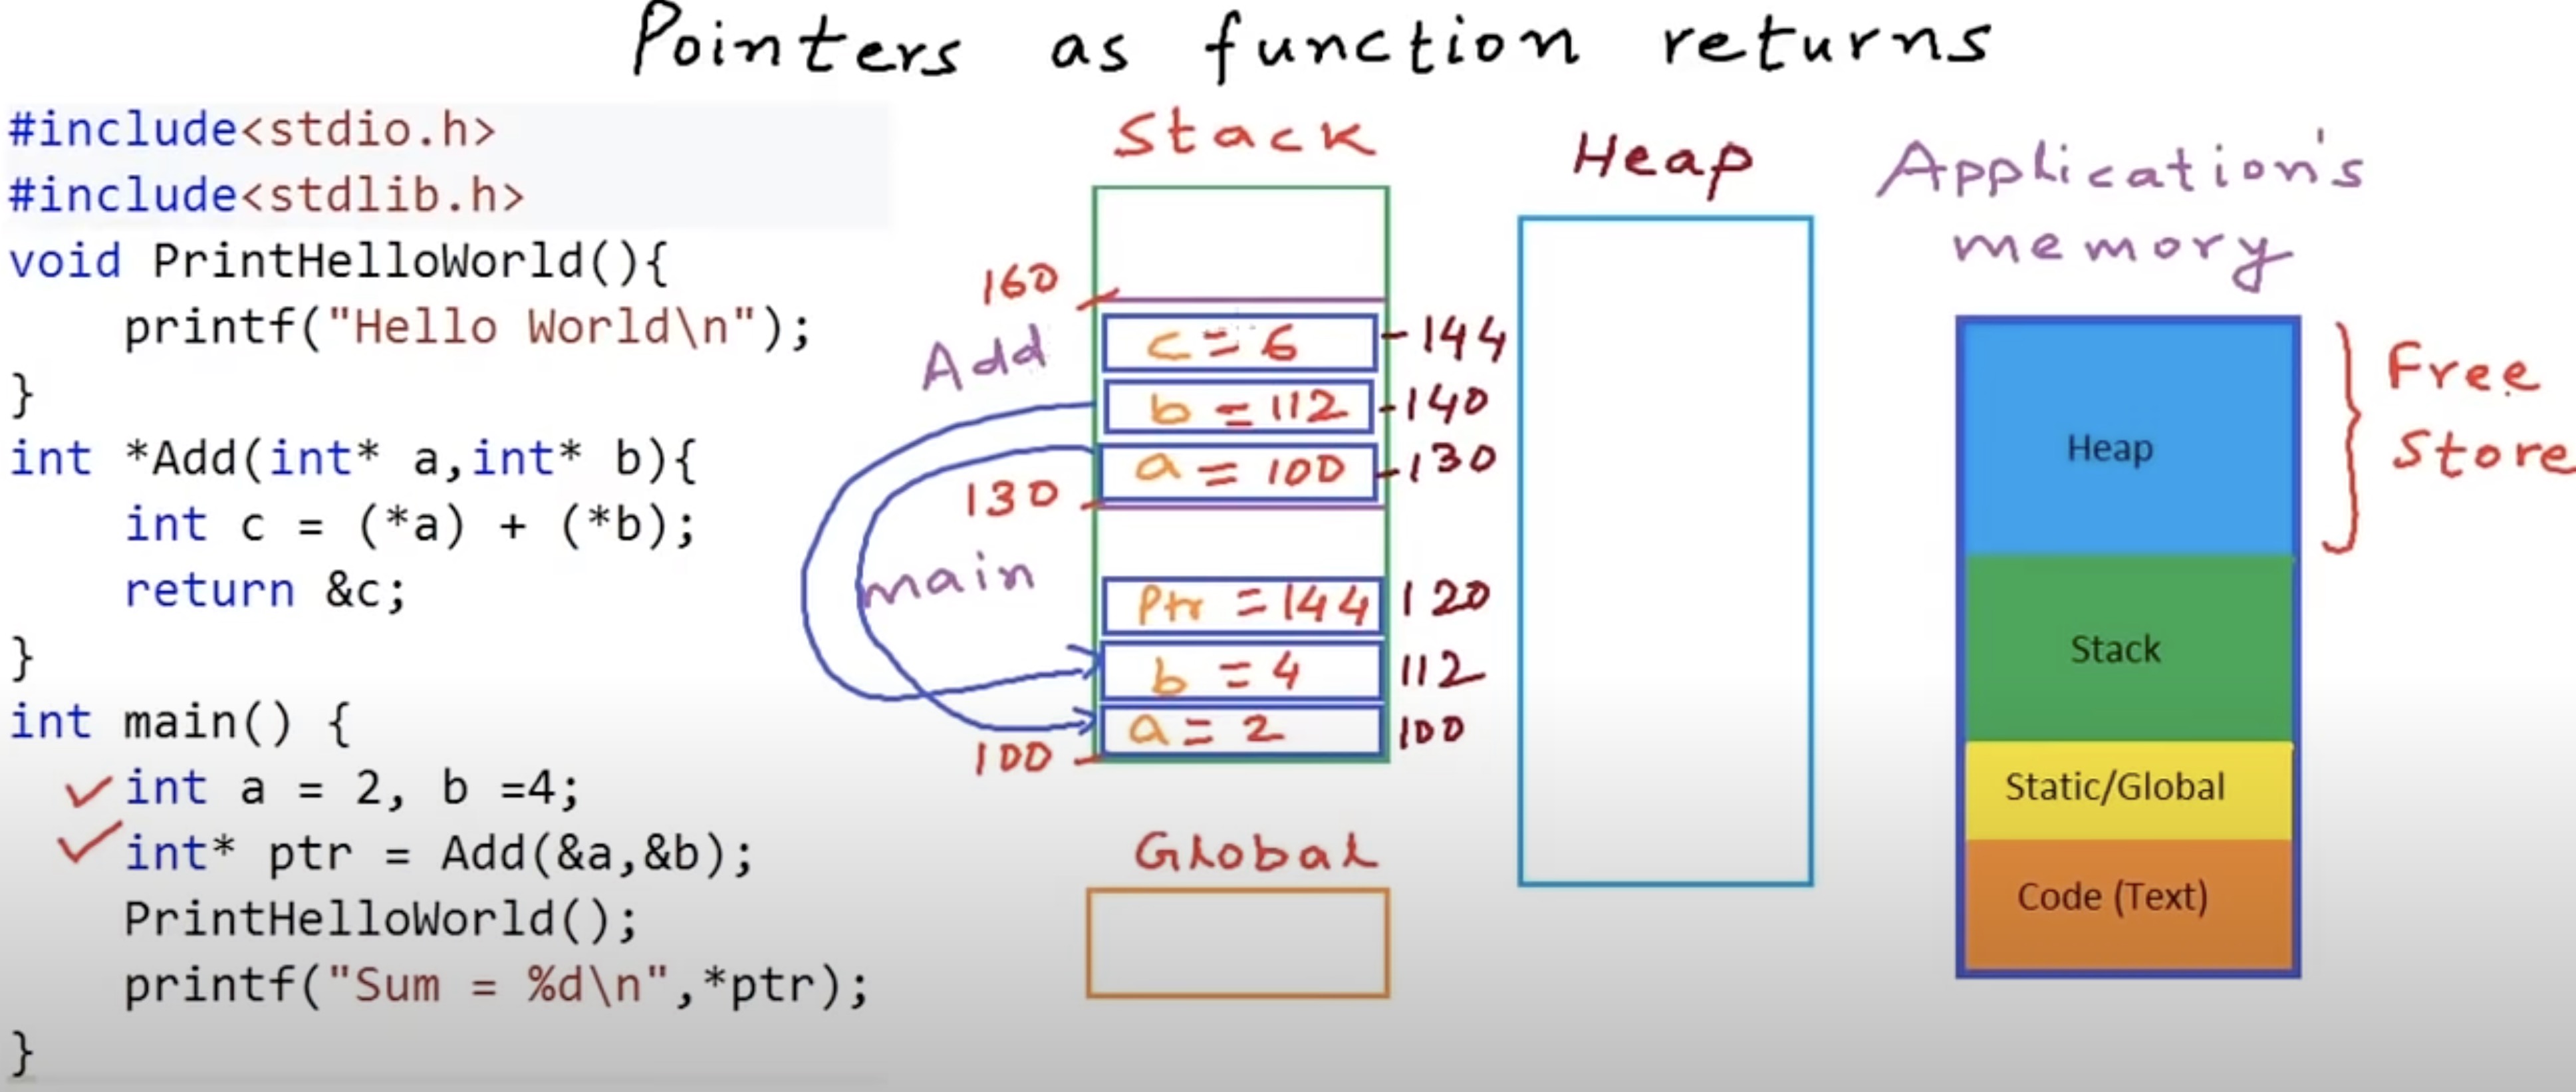 Pointers as function returns
#include<stdio.h>
#include<stdlib.h>
void PrintHelloWorld(){
printf("Hello World\n");
}
int *Add(int* a,int* b){
int c = (*a) + (*b);
return &c;
}
int main() {
int a = 2, b =4;
int* ptr = Add(&a,&b);
PrintHelloWorld();
printf("Sum = %d\n",*ptr);
}
Stack
160
Add
c = 6 -144
b = 112 -140
a = 100 -130
130
main
Ptr = 144 120
b = 4 112
a = 2 100
100
Global
Heap
Application's
memory
Heap
Stack
Static/Global
Code (Text)
Free
Store